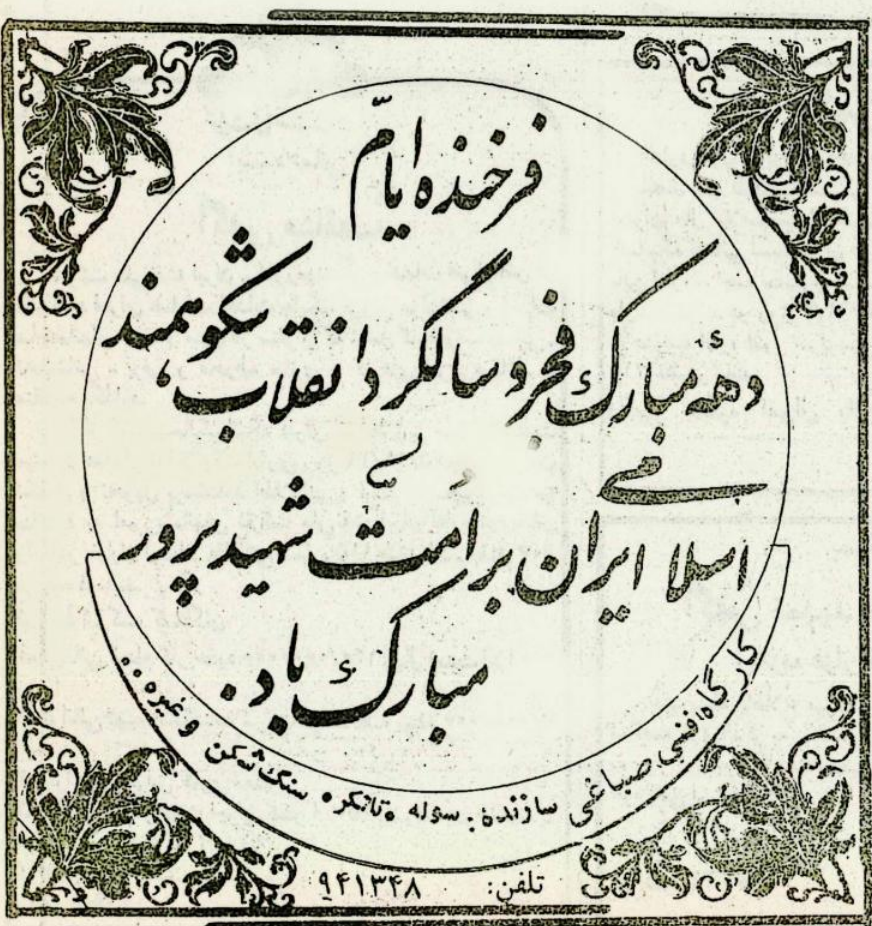 فرخنده ایامّ
دههٔ مبارک فجر و سالگرد انقلاب شکوهمند
اسلامی ایران بر امّت شهید پرور
مبارک باد.
کارگاه فنی صباغی سازنده: سوله • تانکر • سنگ شکن و غیره..
تلفن: ۹۴۱۳۴۸